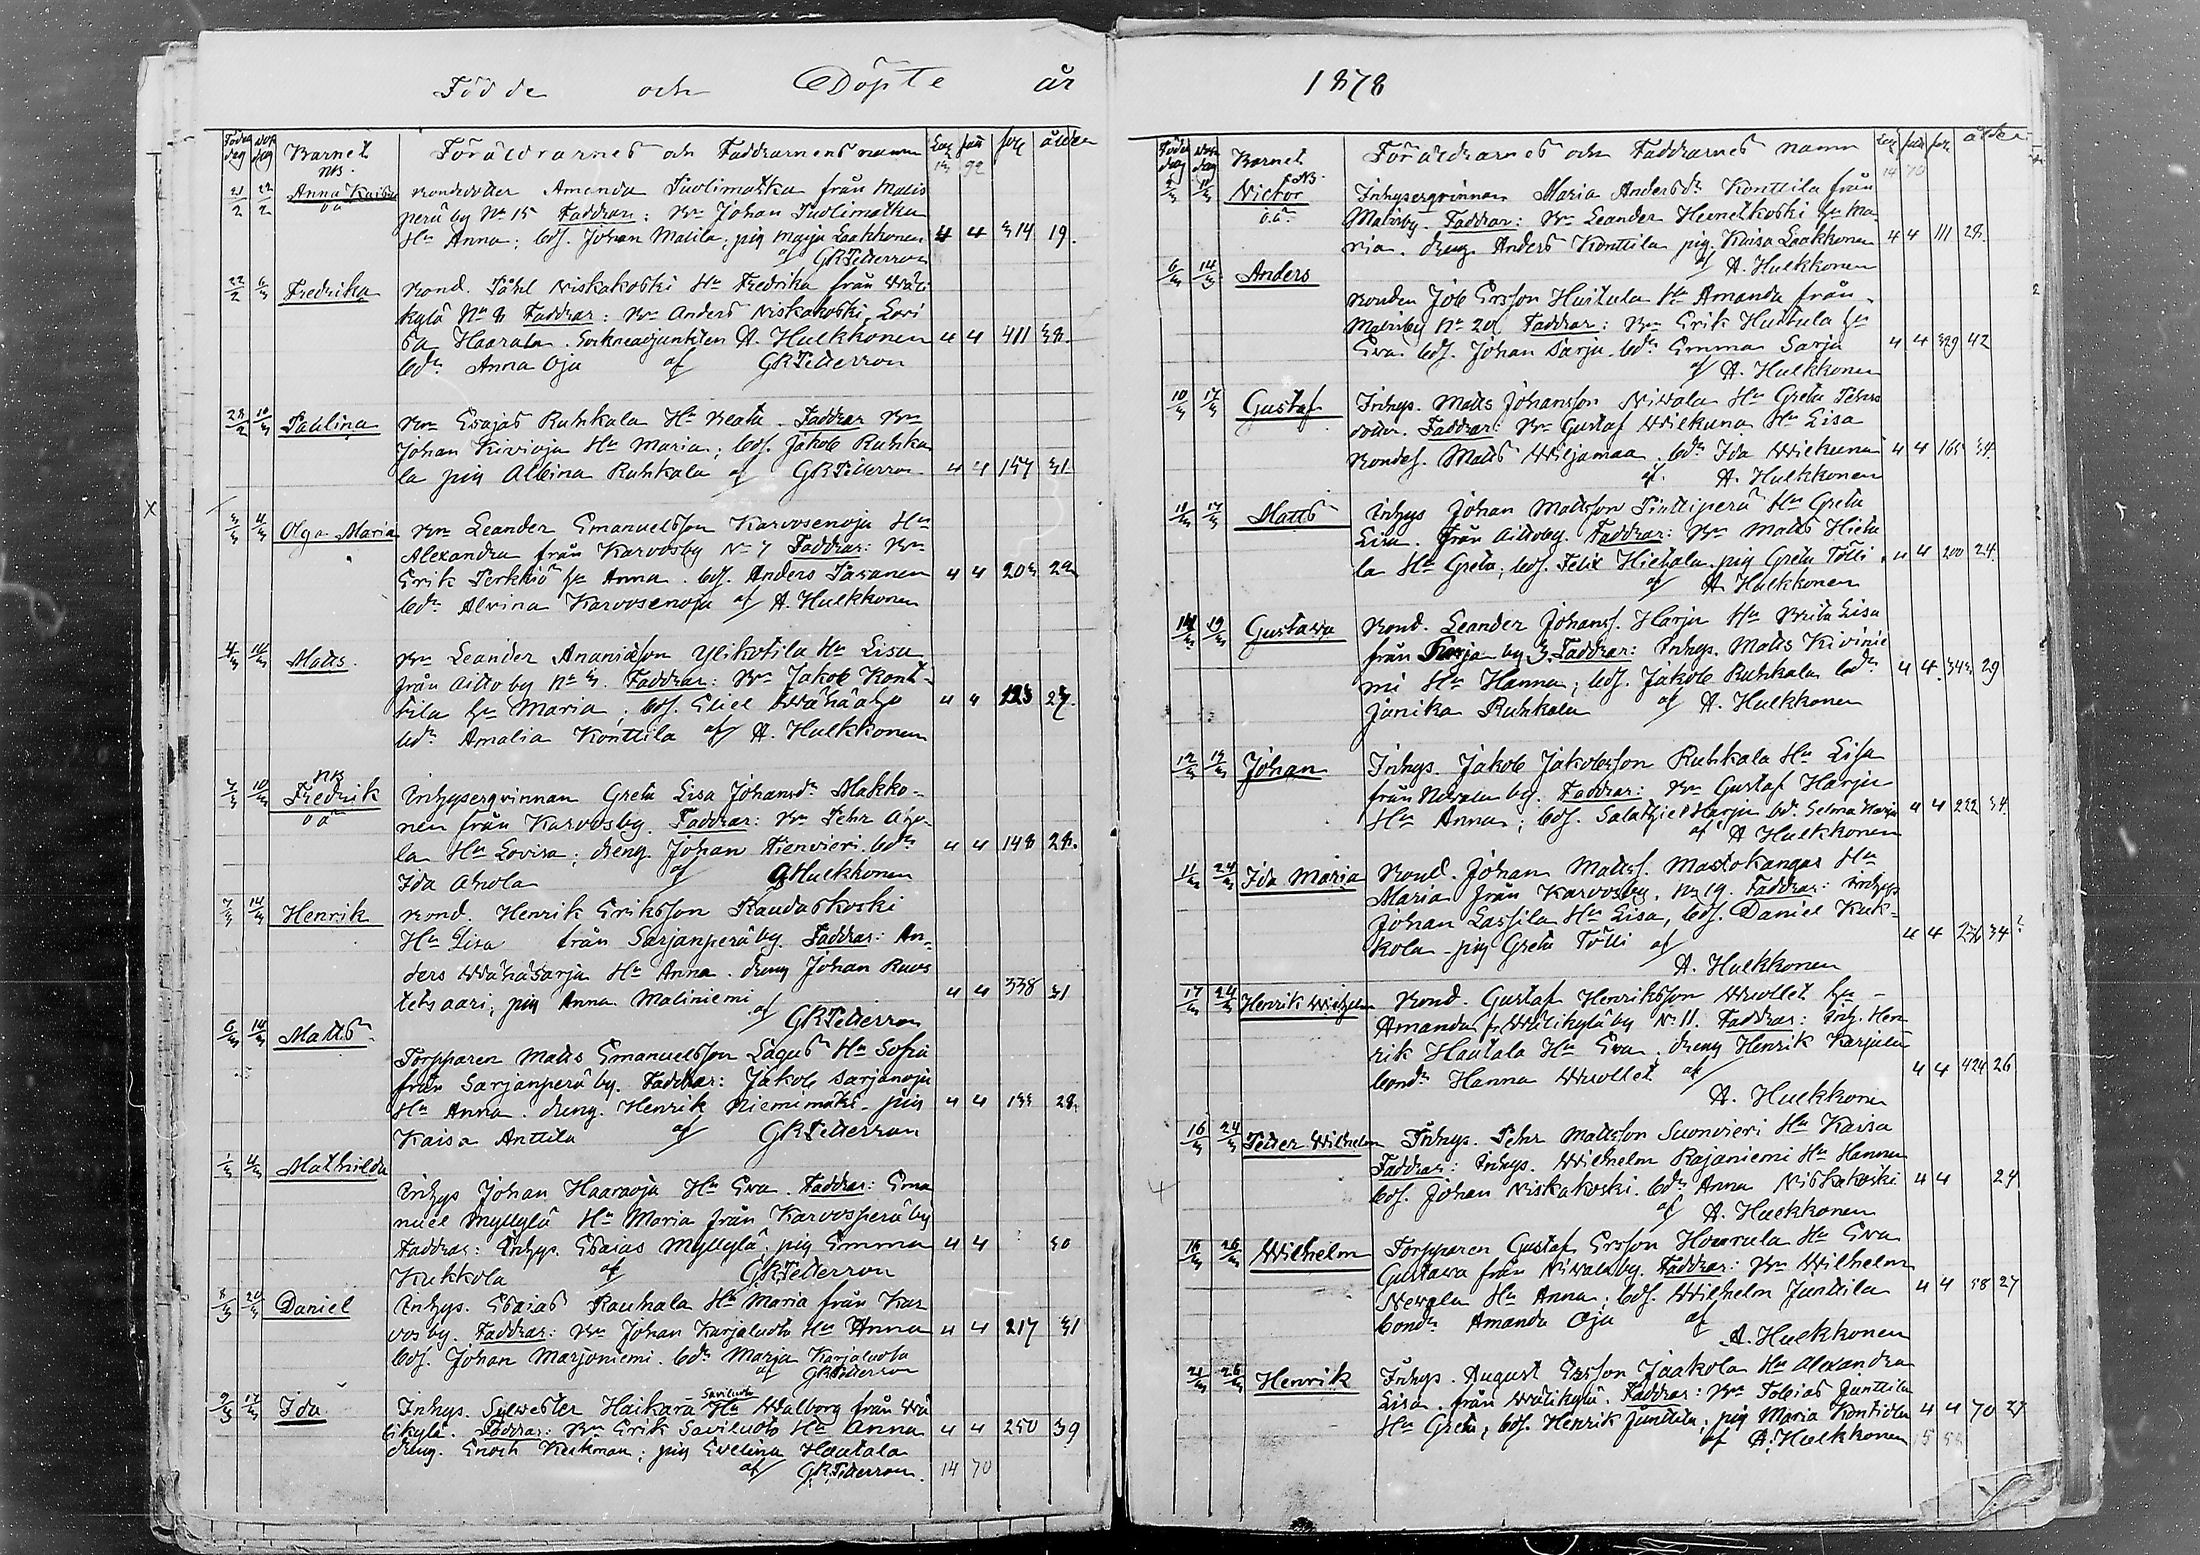 Födde och Döpte år
Barnet Föräldrarnes och Faddrarnes namn ålder
21/2 22/2 Anna Kaisa Bondedotter Amanda Tuolimatka från Matis
oä perä by No 15 Faddrar: Bn Johan Tuolimatka
Hu Anna; bds. Johan Matila; pig Maija Laakkonen 4 4 314 19.
af GRPetterson
22/2 6/3 Fredrika Bond. Påhl Niskakoski Hu Fredrika från Wäli
kylä No 8 Faddrar: Bn Anders Niskakoski, Lovi
sa Haarala. Sockneadjunkten A. Hulkkonen 4 4 411 38.
bdr Anna Oja af GRPetterson
28/2 10/3 Paulina Bn Esajas Ruhkala Hu Beata. Faddrar Bn
Johan Kivioja Hu Maria; bds. Jakob Ruhka
la pig Albina Ruhkala af GRPetterson 4 4 157 31
3/3 4/3 Olga Maria Bn Leander Emanuelsson Karvosenoja Hu
Alexandra från Karvosby No 7 Faddrar: Bn
Erik Perkkiö Hu Anna. bds. Anders Pasanen 4 4 203 22
bdr Alvina Karvosenoja af A. Hulkkonen
4/3 10/3 Matts. Bn Leander Ananiasson Ylikotila Hu Lisa
från Aitto by No 3. Faddrar: Bn Jakob Kont-
tila Hu Maria; bds. Eliel Wähäaho 4 4 123 27.
bdr Amalia Konttila af A. Hulkkonen
7/3 10/3 Fredrik Inhysesqvinnan Greta Lisa Johansdr Makko-
oä nen från Karvosby. Faddrar: Bn Pehr Aho-
la Hu Lovisa; dreng Johan Tienvieri. bdr 4 4 148 28.
Ida Ahola af A Hulkkonen
7/3 14/3 Henrik Bond. Henrik Eriksson Raudaskoski
Hu Lisa från Sarjanperä by. Faddrar: An-
ders Wähäsarja Hu Anna. dreng Johan Ruos
tetsaari; pig Anna Maliniemi 4 4 338 31
af GRPetterson
6/3 14/3 Matts Torpparen Matts Emanuelsson Lagus Hu Sofia
från Sarjanperä by. Faddrar: Jakob Sarjanoja
Hu Anna. dreng. Henrik Niemimäki. pig 4 4 133 28.
Kaisa Anttila af GRPetterson
1/3 4/3 Mathilda
Inhys Johan Haaraoja Hu Eva. Faddrar: Ema
nuel Myllylä Hu Maria från Karvosperä by
Faddrar: Inhys. Esaias Myllylä; pig Emma 4 4 30
Kukkola af GRPetterson
8/3 20/3 Daniel Inhys. Esaias Rauhala Hu Maria från Kar
vosby. Faddrar: Bn Johan Karjaluoto Hu Anna 4 4 217 31
bds. Johan Marjoniemi. bdr Marja Karjaluoto
af GRPetterson
9/3 17/3 Ida Inhys. Sylvester Haikara Saviluoto Hu Walborg från Wä
likylä. Faddrar: Bn Erik Saviluoto Hu Anna 4 4 250 39
dreng. Enoch Keckman; pig Evelina Hautala
af GRPetterson. 14 70
1878
Barnet Föräldrarnes och Faddrarnes namn ålder
Victor Inhysesqvinnan Maria Andersdr Konttila från
oä. Malisby. Faddrar: Bn Leander Heinetkoski Hu Ma-
ria. dreng Anders Konttila pig. Kaisa Laakkonen 4 4 111 28.
af A. Hulkkonen
6/3 14/3 Anders
Bonden Job Ersson Huitula Hu Amanda från
Malisby No 20 Faddrar: Bn Erik Huitula Hu
Eva. bds. Johan Sarja. bdr Emma Sarja 4 4 329 42
af A. Hulkkonen
10/3 17/3 Gustaf Inhys. Matts Johansson Niwala Hu Greta Pehrs
dotter. Faddrar: Bn Gustaf Wilkuna Hu Lisa
Bondes. Matts Wiljamaa. bdr Ida Wilkuna 4 4 165 34.
af A. Hulkkonen
17/3 Matts Inhys Johan Mattsson Pinttiperä Hu Greta
Lisa. från Aittoby. Faddrar: Bn Matts Hieta
la Hu Greta; bds. Felix Hietala. pig Greta Tölli. 4 4 200 24.
af A. Hulkkonen
14/3 19/3 Gustawa Bond. Leander Johans. Harju Hu Brita Lisa
från Sarja by 3. Faddrar: Inhys. Matts Kivinie
mi Hu Hanna; bds. Jakob Ruhkala bdr 4 4 343 29
Janika Ruhkala af A. Hulkkonen
12/3 19/3 Johan Inhys. Jakob Jakobsson Ruhkala Hu Lisa
från Niwala by. Faddrar: Bn Gustaf Harju
Hu Anna; bds. Salathiel Harju bd. Selma Harju 4 4 222 34.
af A Hulkkonen
11/3 24/3 Ida Maria Bond. Johan Matts. Mastokangas Hu
Maria från Karvosby. No 19. Faddrar: Inhys
Johan Lassila Hu Lisa, bds. Daniel Kuk-
kola. pig Greta Tölli af 4 4 236 34
A. Hulkkonen
17/3 24/3 Henrik Wilhelm Bond. Gustaf Henriksson Wuollet Hu
Amanda fr Wälikylä by No 11. Faddrar: Inh. Hen
rik Hautala Hu Eva. dreng Henrik Karjula
bondr Hanna Wuollet af 4 4 424 26
A. Hulkkonen
16/3 24/3 Petter Wilhelm Inhys. Pehr Mattsson Suonvieri Hu Kaisa
Faddrar: Inhys. Wilhelm Rajaniemi Hu Hanna
bds. Johan Niskakoski. bdr Anna Niskakoski 4 4 24
af A. Hulkkonen
16/3 26/3 Wilhelm Torpparen Gustaf Ersson Hourula Hu Eva
Gustawa från Niwalaby. Faddrar: Bn Wilhelm
Newala Hu Anna; bds. Wilhelm Junttila 4 4 58 27
bondr Amanda Oja af
A. Hulkkonen
21/3 26/3 Henrik Inhys. August Ersson Jaakola Hu Alexandra
Lisa. från Wälikylä. Faddrar: Bn Tobias Junttila
Hu Greta; bds. Henrik Junttila; pig Maria Kontiola 4 4 70 27
af A. Hulkkonen